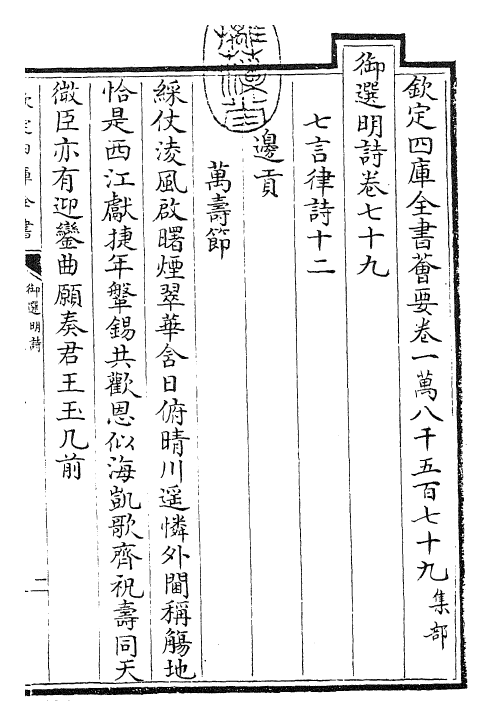 欽定四庫全書薈要卷一萬八千五百七十九集部
御選明詩卷七十九
七言律詩十二
邊貢
萬壽節
綵仗凌風啟曙煙翠華含日俯晴川遥憐外閫稱觴地
恰是西江獻捷年鞶錫共歡恩似海凱歌齊祝壽同天
微臣亦有迎鑾曲願奏君王玉几前
御選明詩